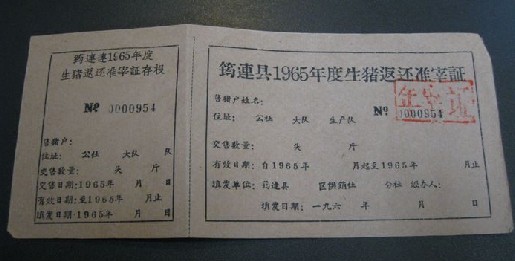 筠連縣1965年度
生猪返还准宰証存根
№ 0000954
售猪户:
住址: 公社 大队 队
交售数量: 头 斤
交售日期:1965年 月 日
有效日期:至1965年 月 日止
填发日期:1965年 月 日
筠連县1965年度生猪返还准宰証
售猪户姓名:
№ 0000954
住址: 公社 大队 生产队
交售数量: 头 斤
有效日期:自1965年 月 起至1965年 月 日止
填发单位:筠連县 区供销社 公社 經办人:
填发日期:一九六 年 月 日
宰証